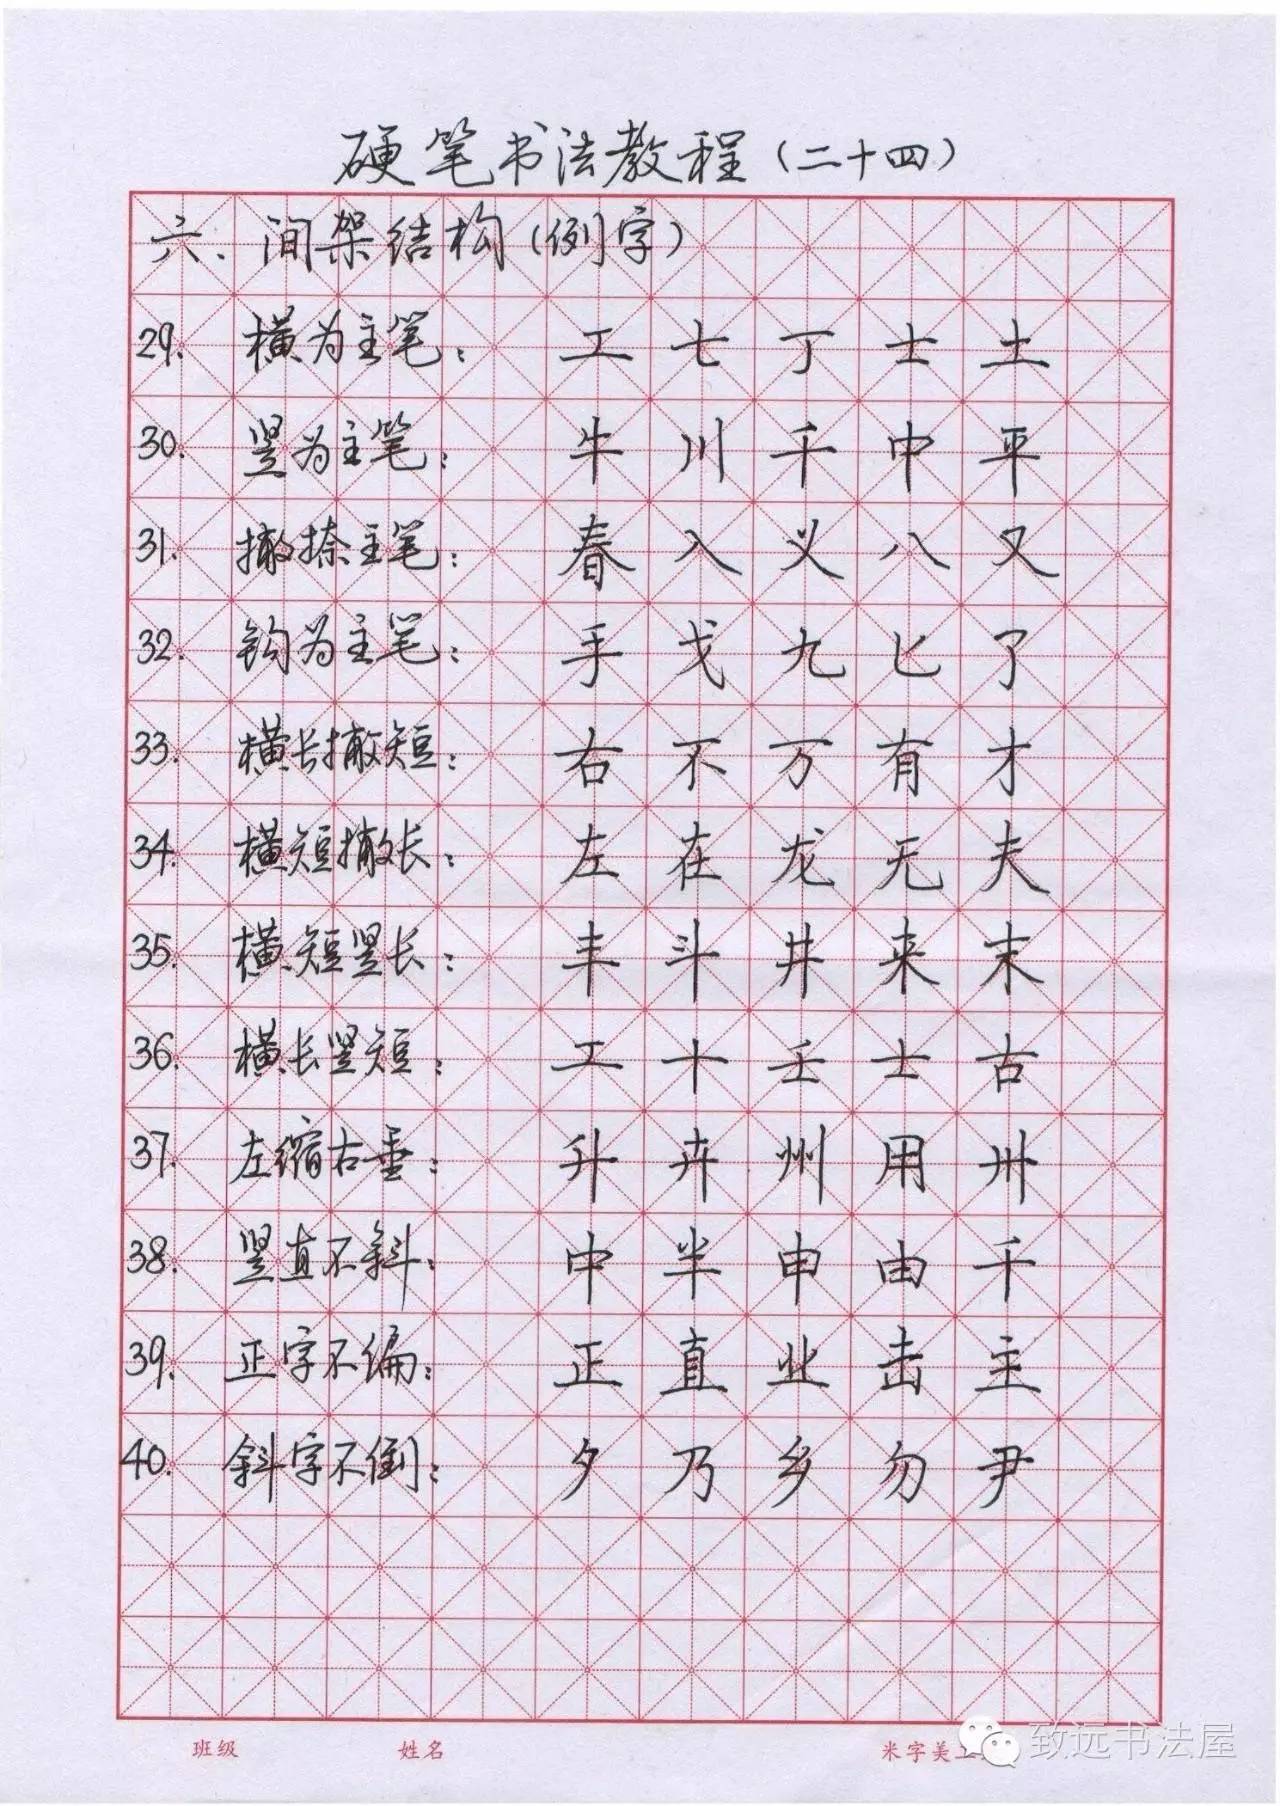 硬笔书法教程(二十四)
六、间架结构(例字)
29. 横为主笔: 工 七 丁 士 土
30. 竖为主笔: 牛 川 千 中 平
31. 撇捺主笔: 春 入 义 八 又
32. 钩为主笔: 手 戈 九 匕 了
33. 横长撇短: 右 不 万 有 才
34. 横短撇长: 左 在 龙 无 夫
35. 横短竖长: 丰 斗 井 来 末
36. 横长竖短: 工 十 壬 士 古
37. 左缩右垂: 升 卉 州 用 卅
38. 竖直不斜: 中 半 申 由 千
39. 正字不偏: 正 直 业 击 主
40. 斜字不倒: 夕 乃 乡 勿 尹
班级 姓名 米字美工
致远书法屋